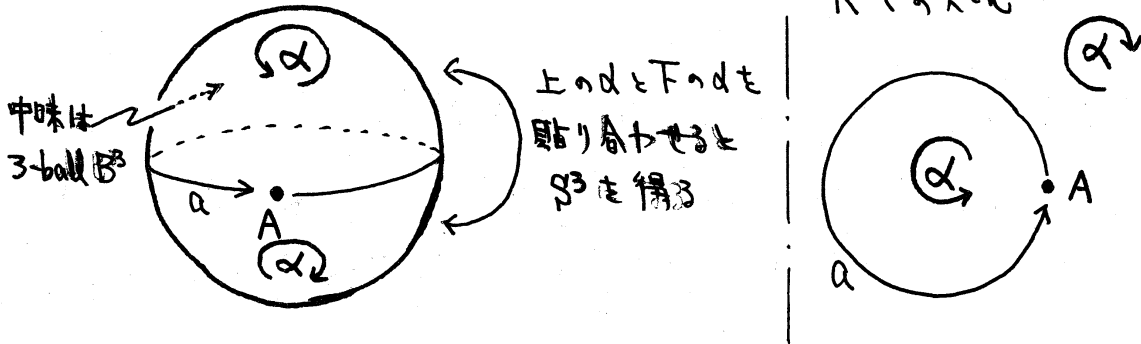 α
中味は
3-ball B³
a
A
α
上のαと下のαを
貼り合わせると
S³を得る
α
α
A
a